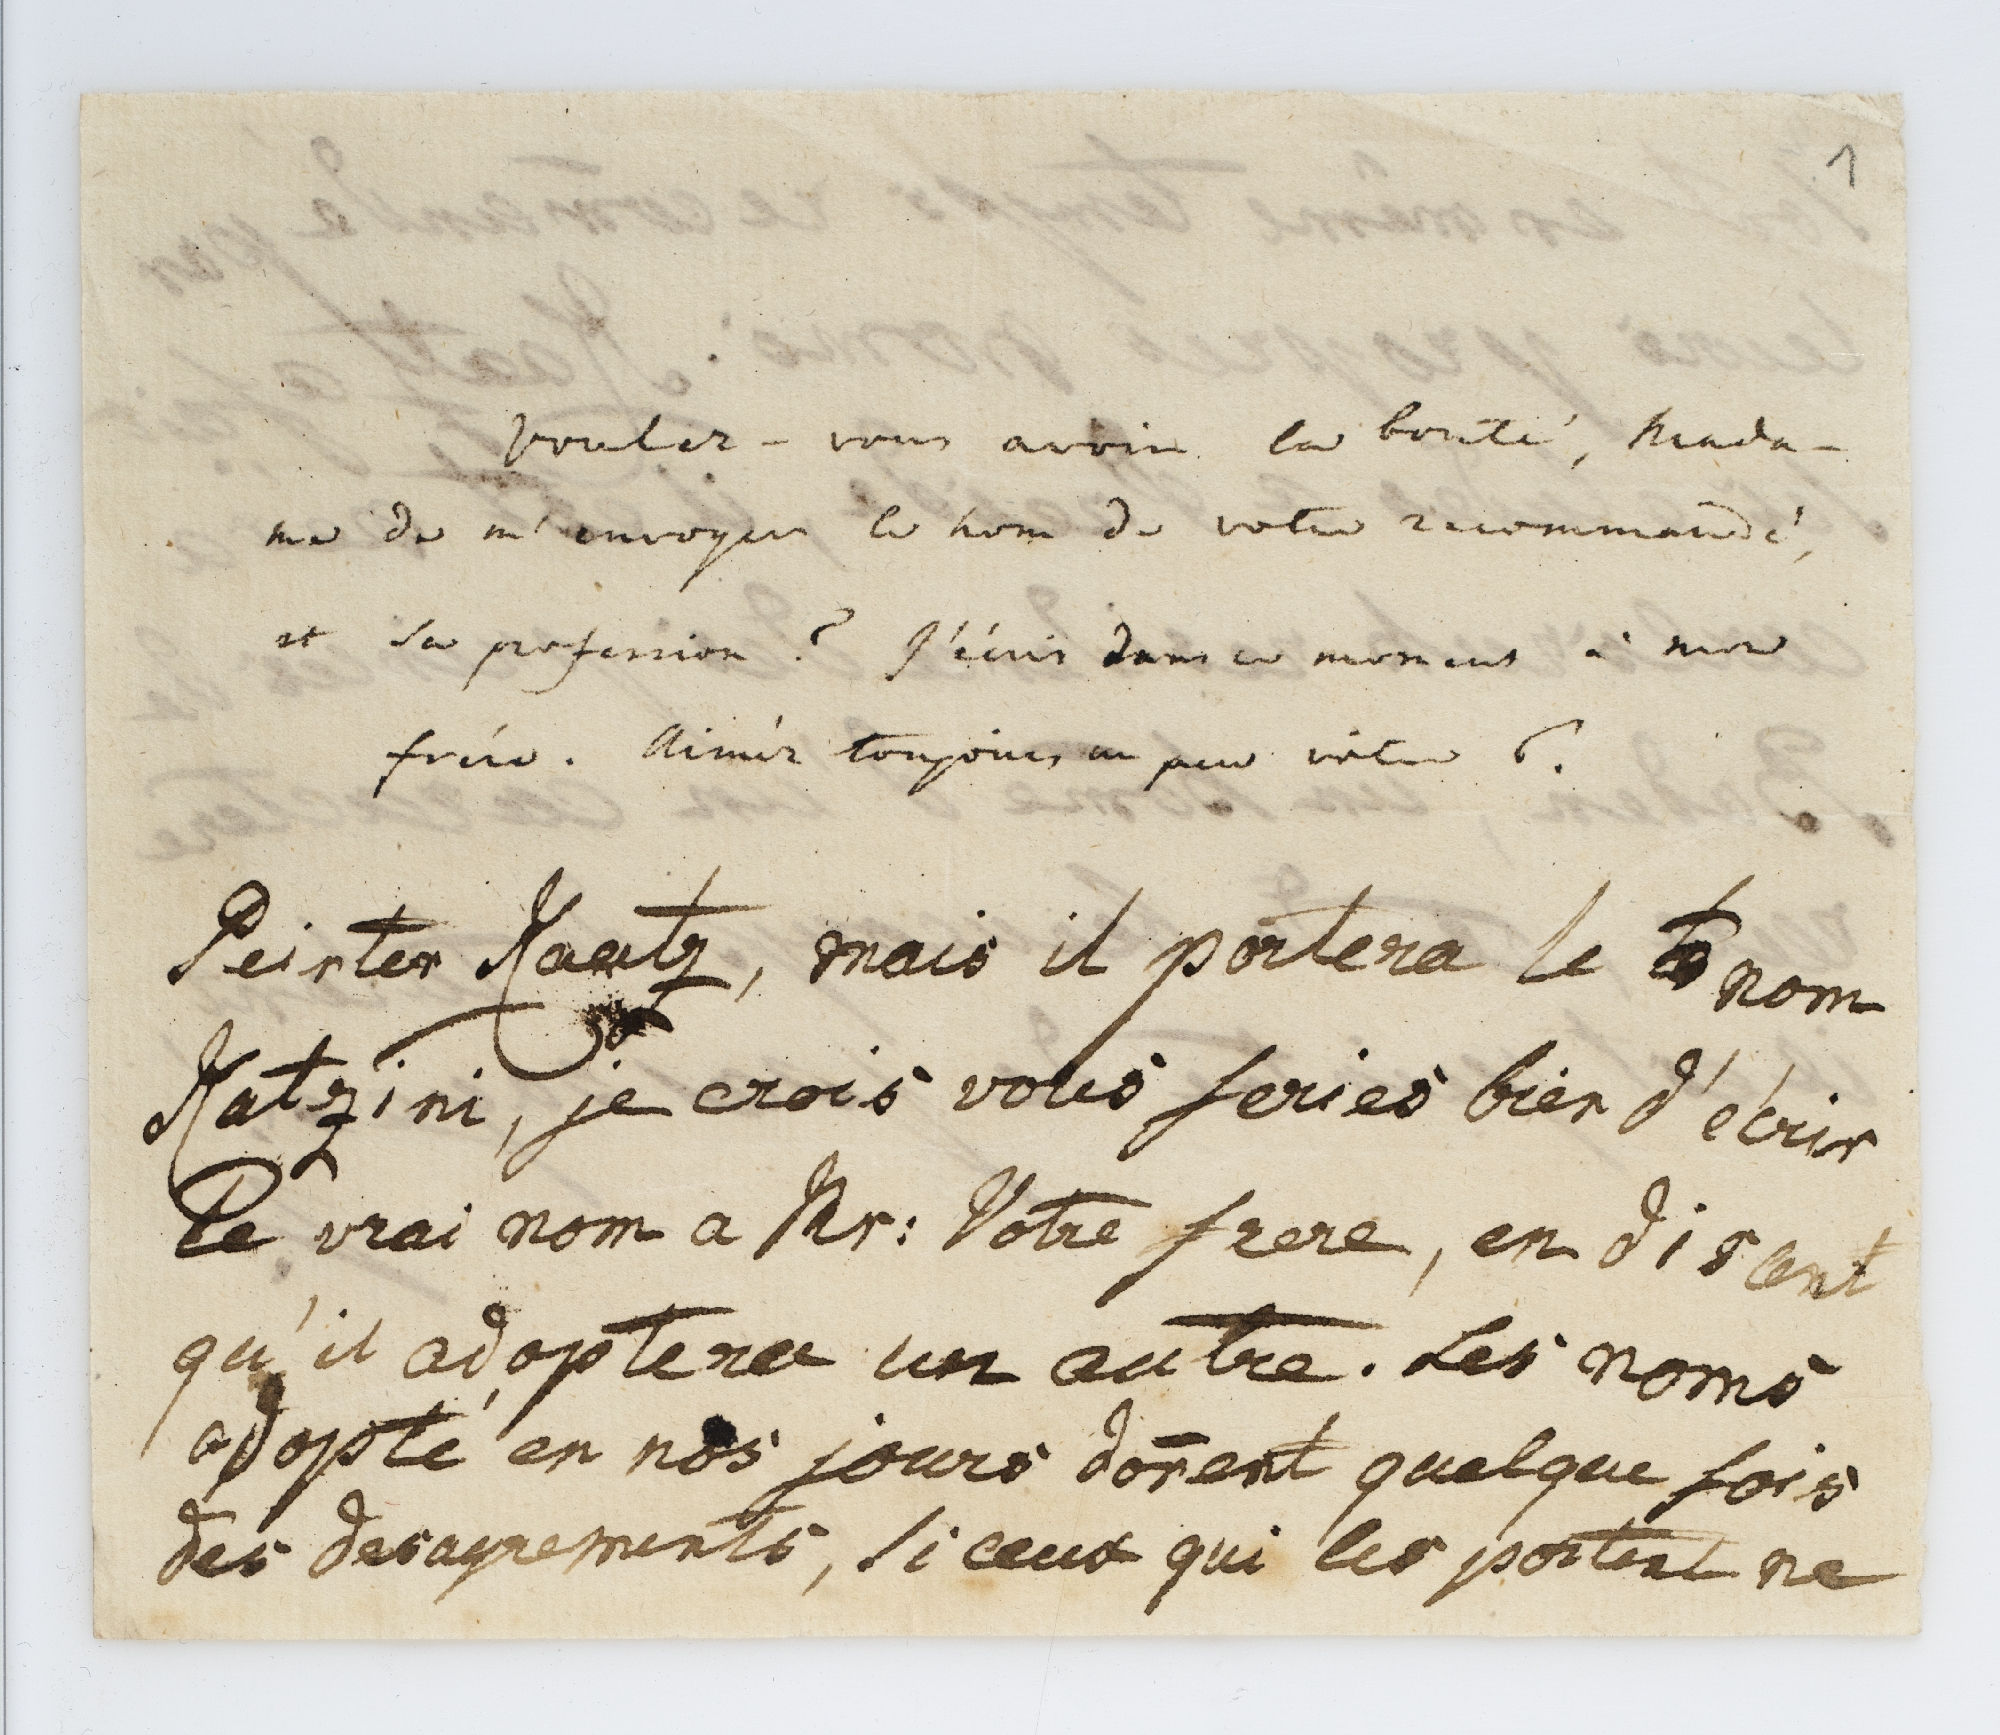 1
Voulez-vous avoir la bonté, Mada-
me de m'envoyer le nom de votre recommandé,
et sa profession? J'écris dans ce moment à mon
frére. Aimér toujours un peu vôtre G.
Peinter Kaatz, mais il portera le nom
Katzini, je crois vous feries bien d'écrir
le vrai nom a Mr: Votre frere, en disant
qu'il adoptera un autre. Les noms
adopté en nos jours doñent quelque fois
des desagrements, si ceux qui les portent ne